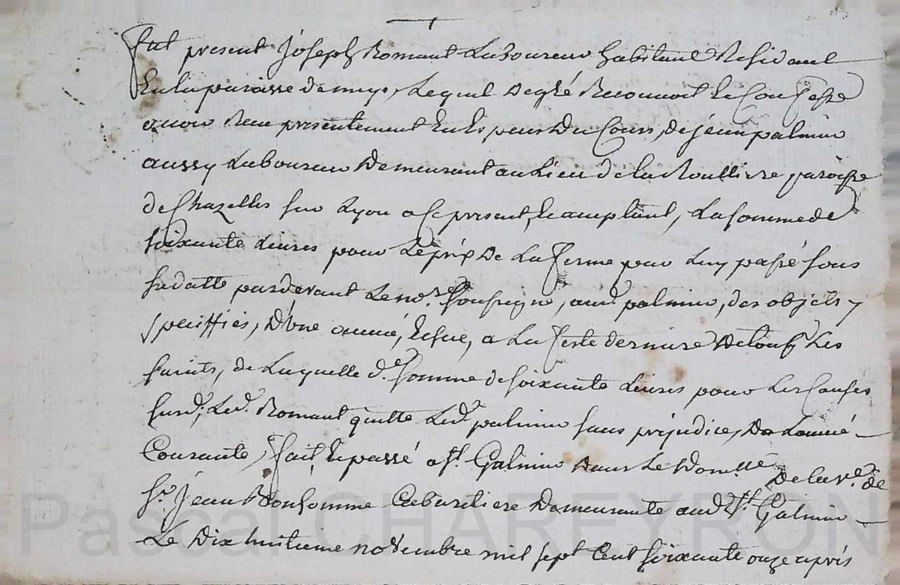 fut present Joseph Romant Laboureur habitant Residant
En la paroisse de mays, Lequel de gré Reconnoit Et Confesse
avoir Reçu presentement En Especes Du Cours, de jean palmier
aussy Laboureur Demeurant au Lieu de La Roulliere paroisse
de Chazelles sur Lyon a Ce present, Et acceptant, La somme de
soixante Livres pour Le prix De La ferme par Luy passé sous
sa datte pardevant Le no.re soussigné, aud. palmier, des objets y
speciffiés, D'une année, Echue, a La feste derniere De tous Les
saints, de Laquelle d.e somme de soixante Livres pour Les Causes
susd. Led. Romant quitte Led. palmier sans préjudice, De L'année
Courante, fait Et passé a S.t Galmier Dans Le Domicille De la ve. de
S.r Jean Bonhomme Cabaretiere Demeurante aud. S.t Galmier
Le Dix huitieme novembre mil sept Cent soixante onze après
Pascal CHAREYRON